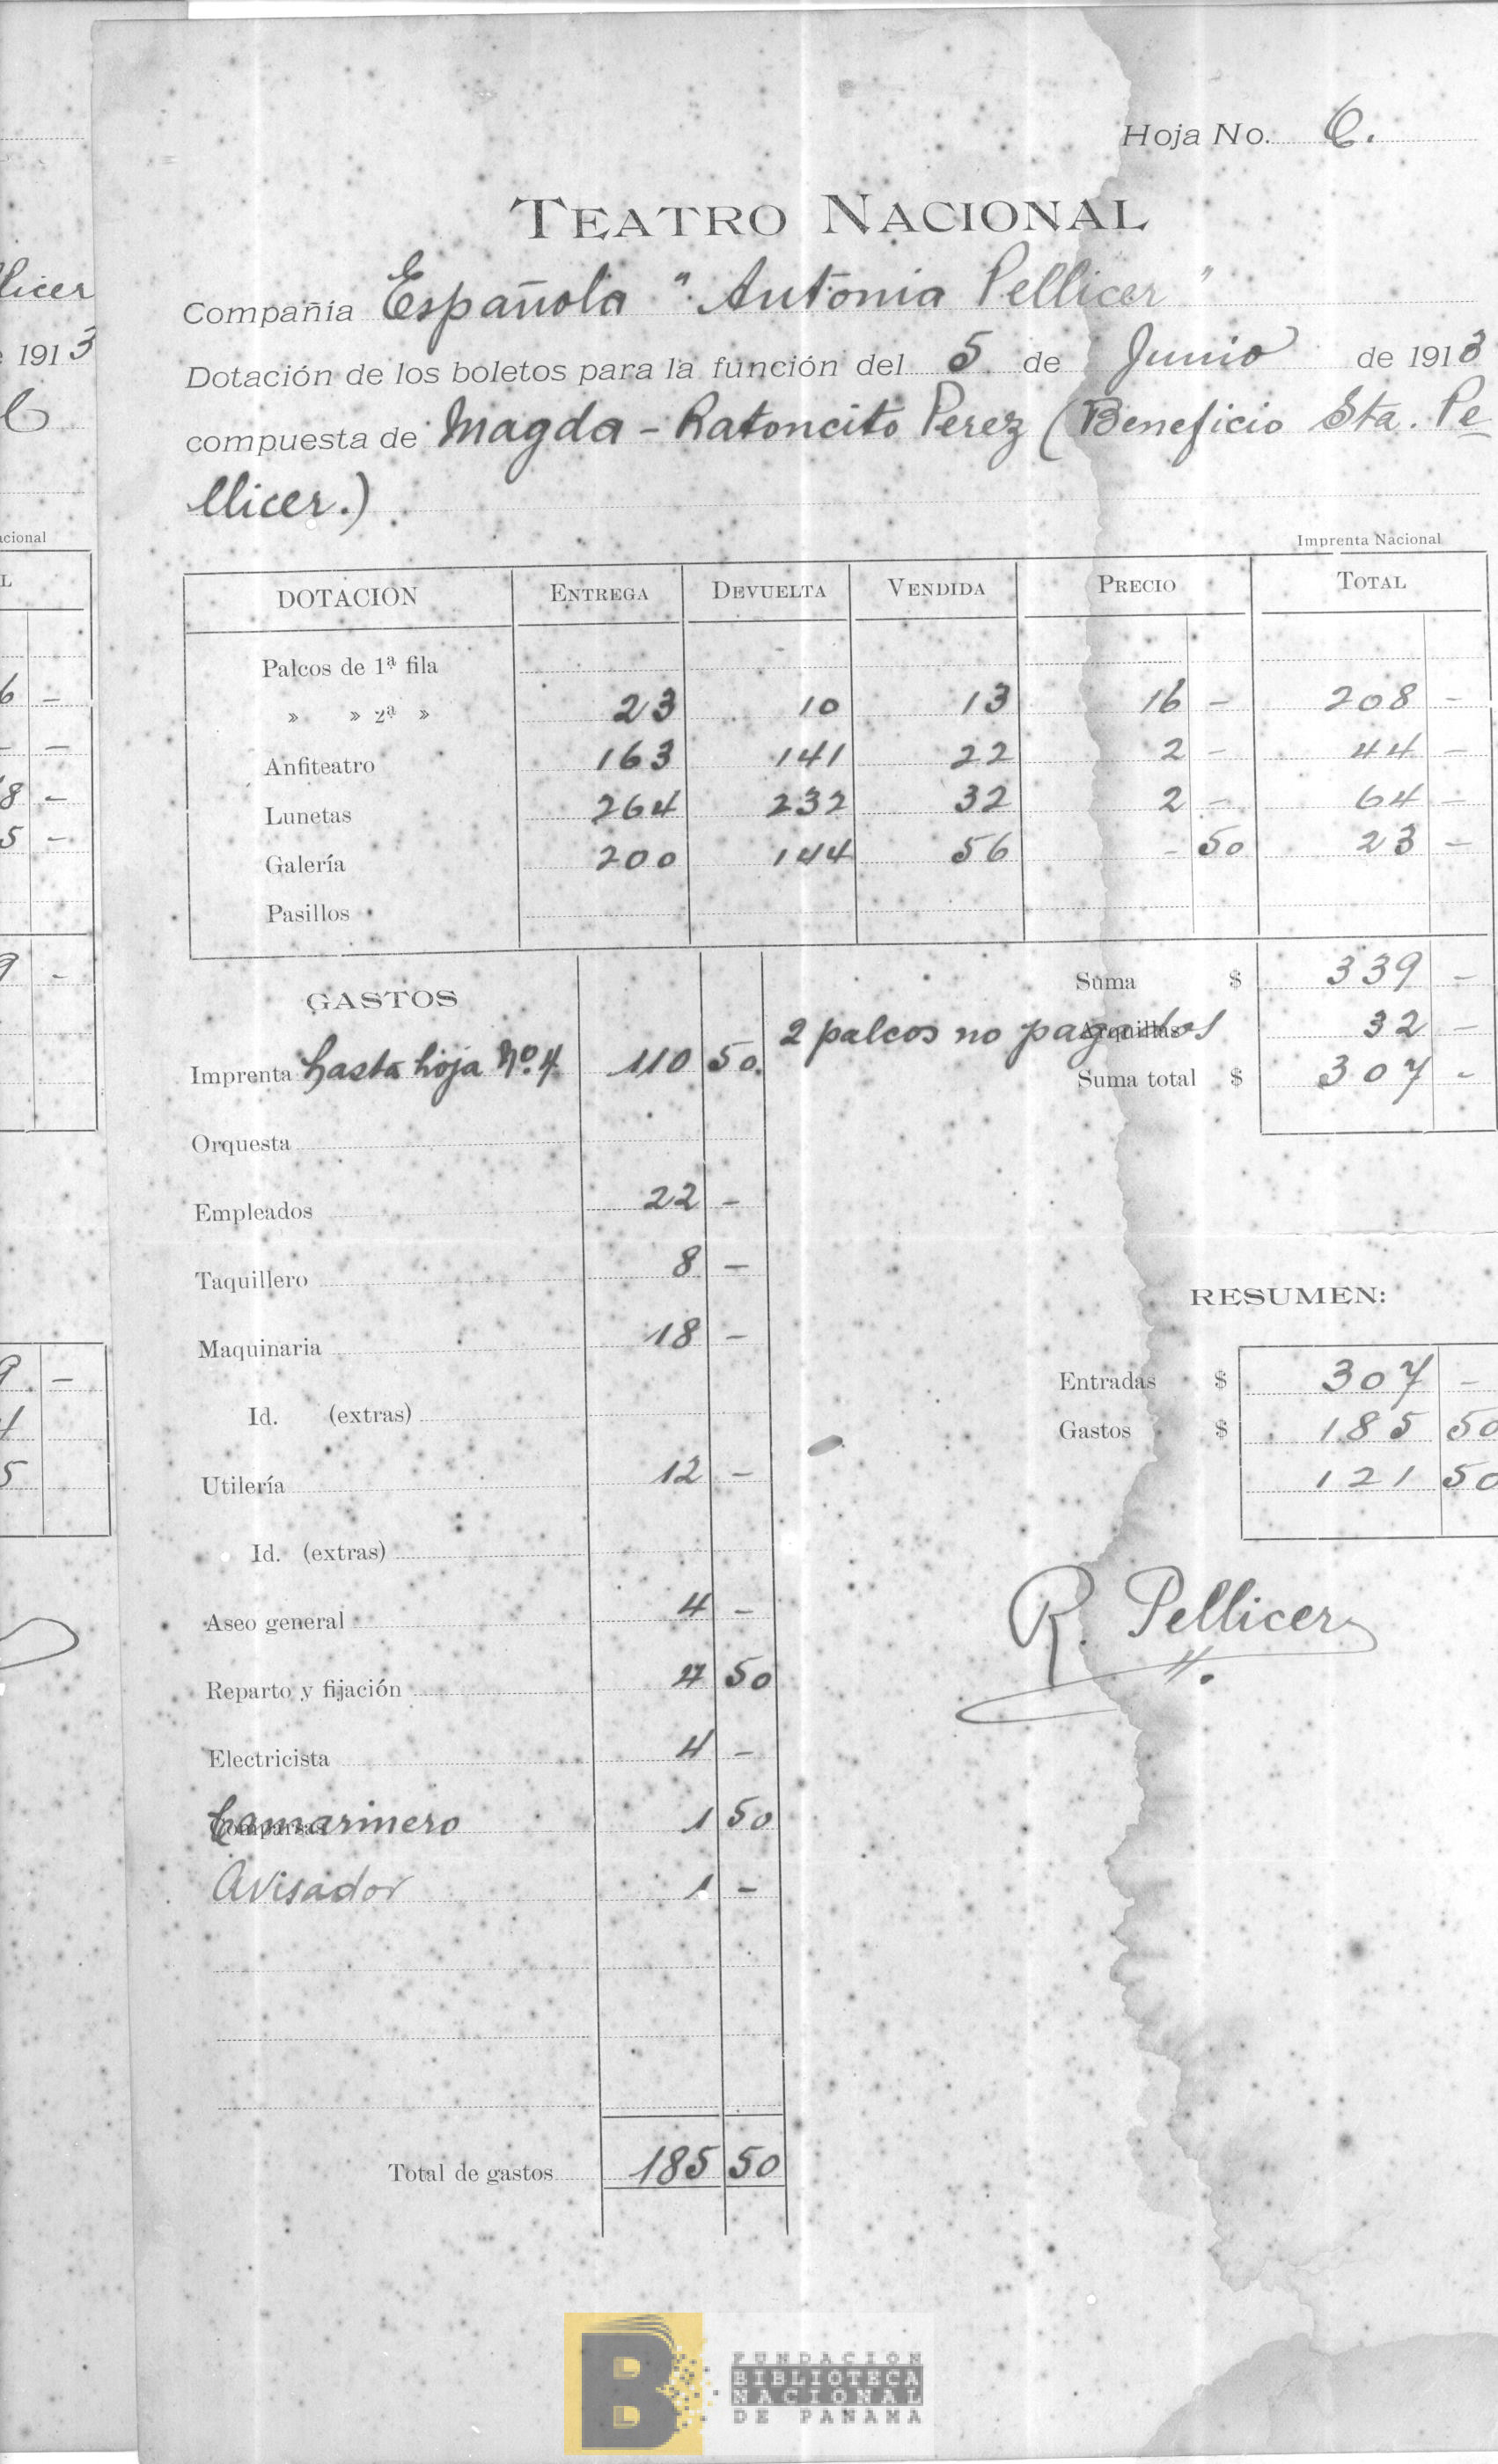 Hoja No. 6.
TEATRO NACIONAL
Compañía Española "Antonia Pellicer"
Dotación de los boletos para la función del 5 de Junio de 1913
compuesta de Magda - Ratoncito Perez (Beneficio Sta. Pe
llicer.)
Imprenta Nacional
DOTACIÓN ENTREGA DEVUELTA VENDIDA PRECIO TOTAL
Palcos de 1ª fila
» » 2ª » 23 10 13 16 - 208 -
Anfiteatro 163 141 22 2 - 44 -
Lunetas 264 232 32 2 - 64 -
Galería 200 144 56 - 50 23 -
Pasillos
GASTOS
Suma $ 339 -
2 palcos no pagados 32 -
Imprenta hasta hoja Nº. 4 110 50.
Suma total $ 307 -
Orquesta
Empleados 22 -
Taquillero 8 -
Maquinaria 18 -
Id. (extras)
Utilería 12 -
Id. (extras)
Aseo general 4 -
Reparto y fijación 4 50
Electricista 4 -
Camarinero 1 50
Avisador 1 -
Total de gastos 185 50
RESUMEN:
Entradas $ 307 -
Gastos $ 185 50
121 50
R. Pellicer
licer
1913
acional
L
6 -
- -
8 -
5 -
9 -
9 -
4
5
FUNDACION
BIBLIOTECA
NACIONAL
DE PANAMA